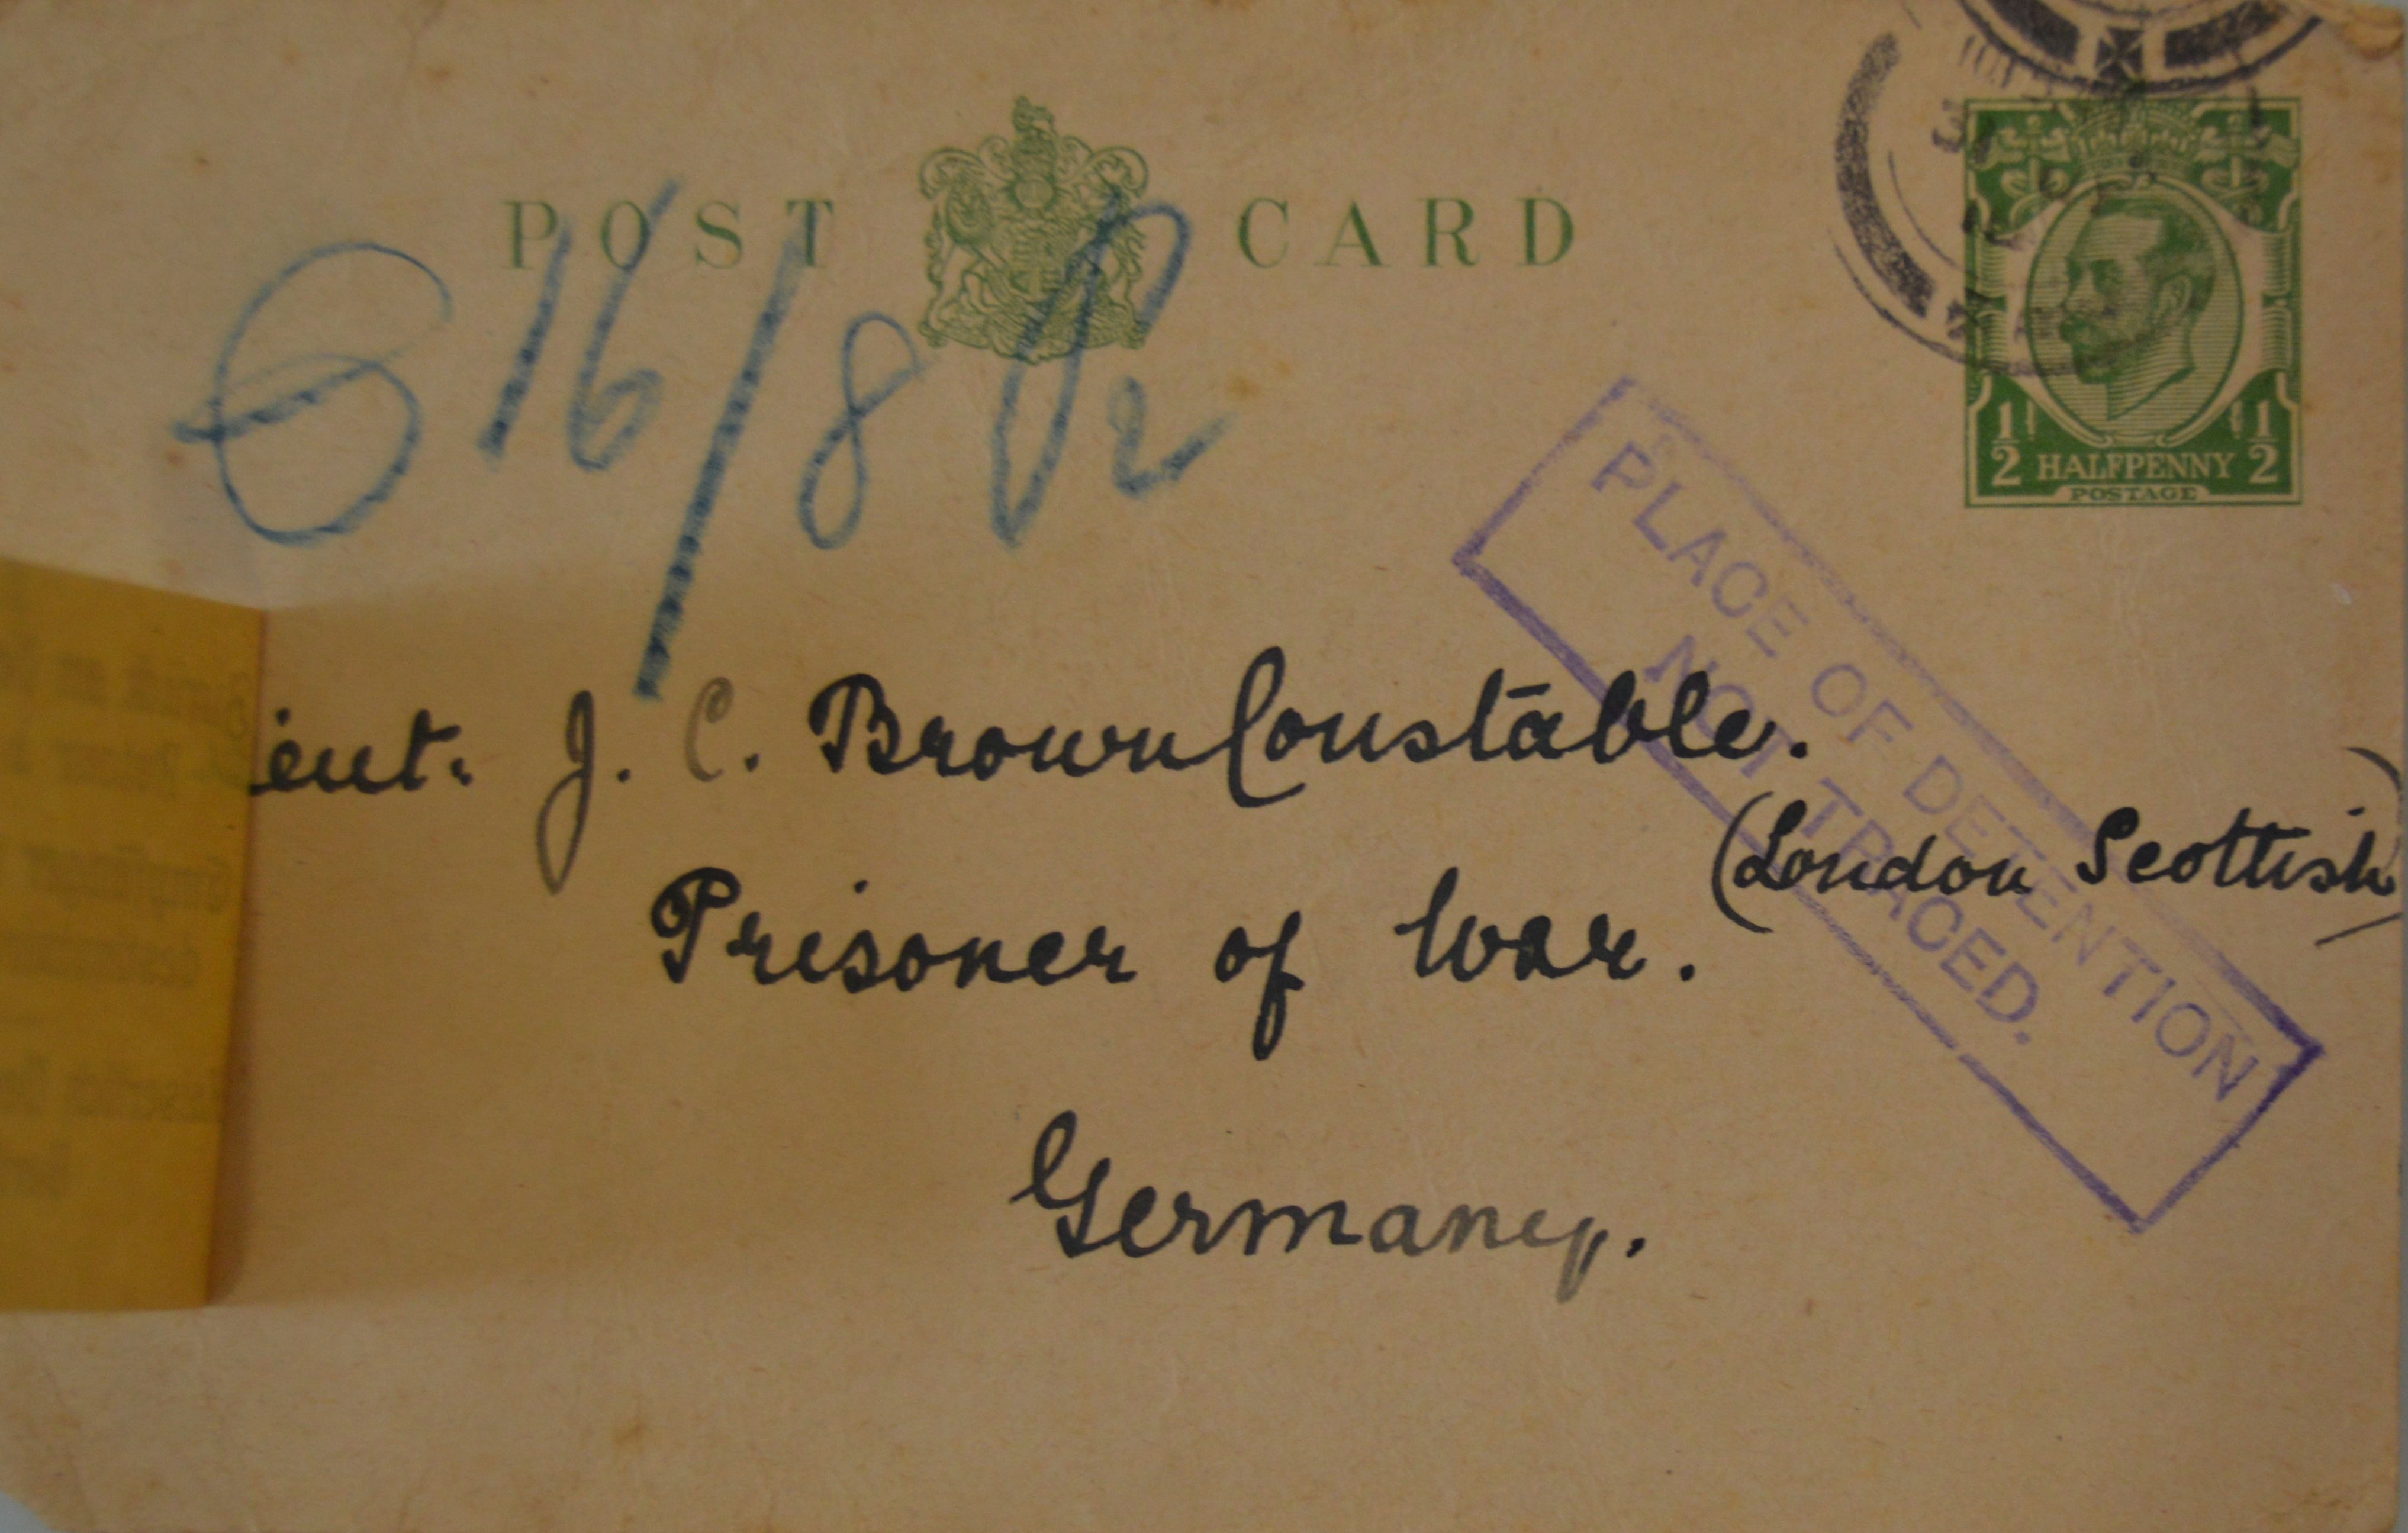 POST CARD
16/8
1/2 HALFPENNY 1/2
POSTAGE
PLACE OF DETENTION
NOT TRACED.
ieut. J. C. Brown Constable.
(London Scottish)
Prisoner of War.
Germany.